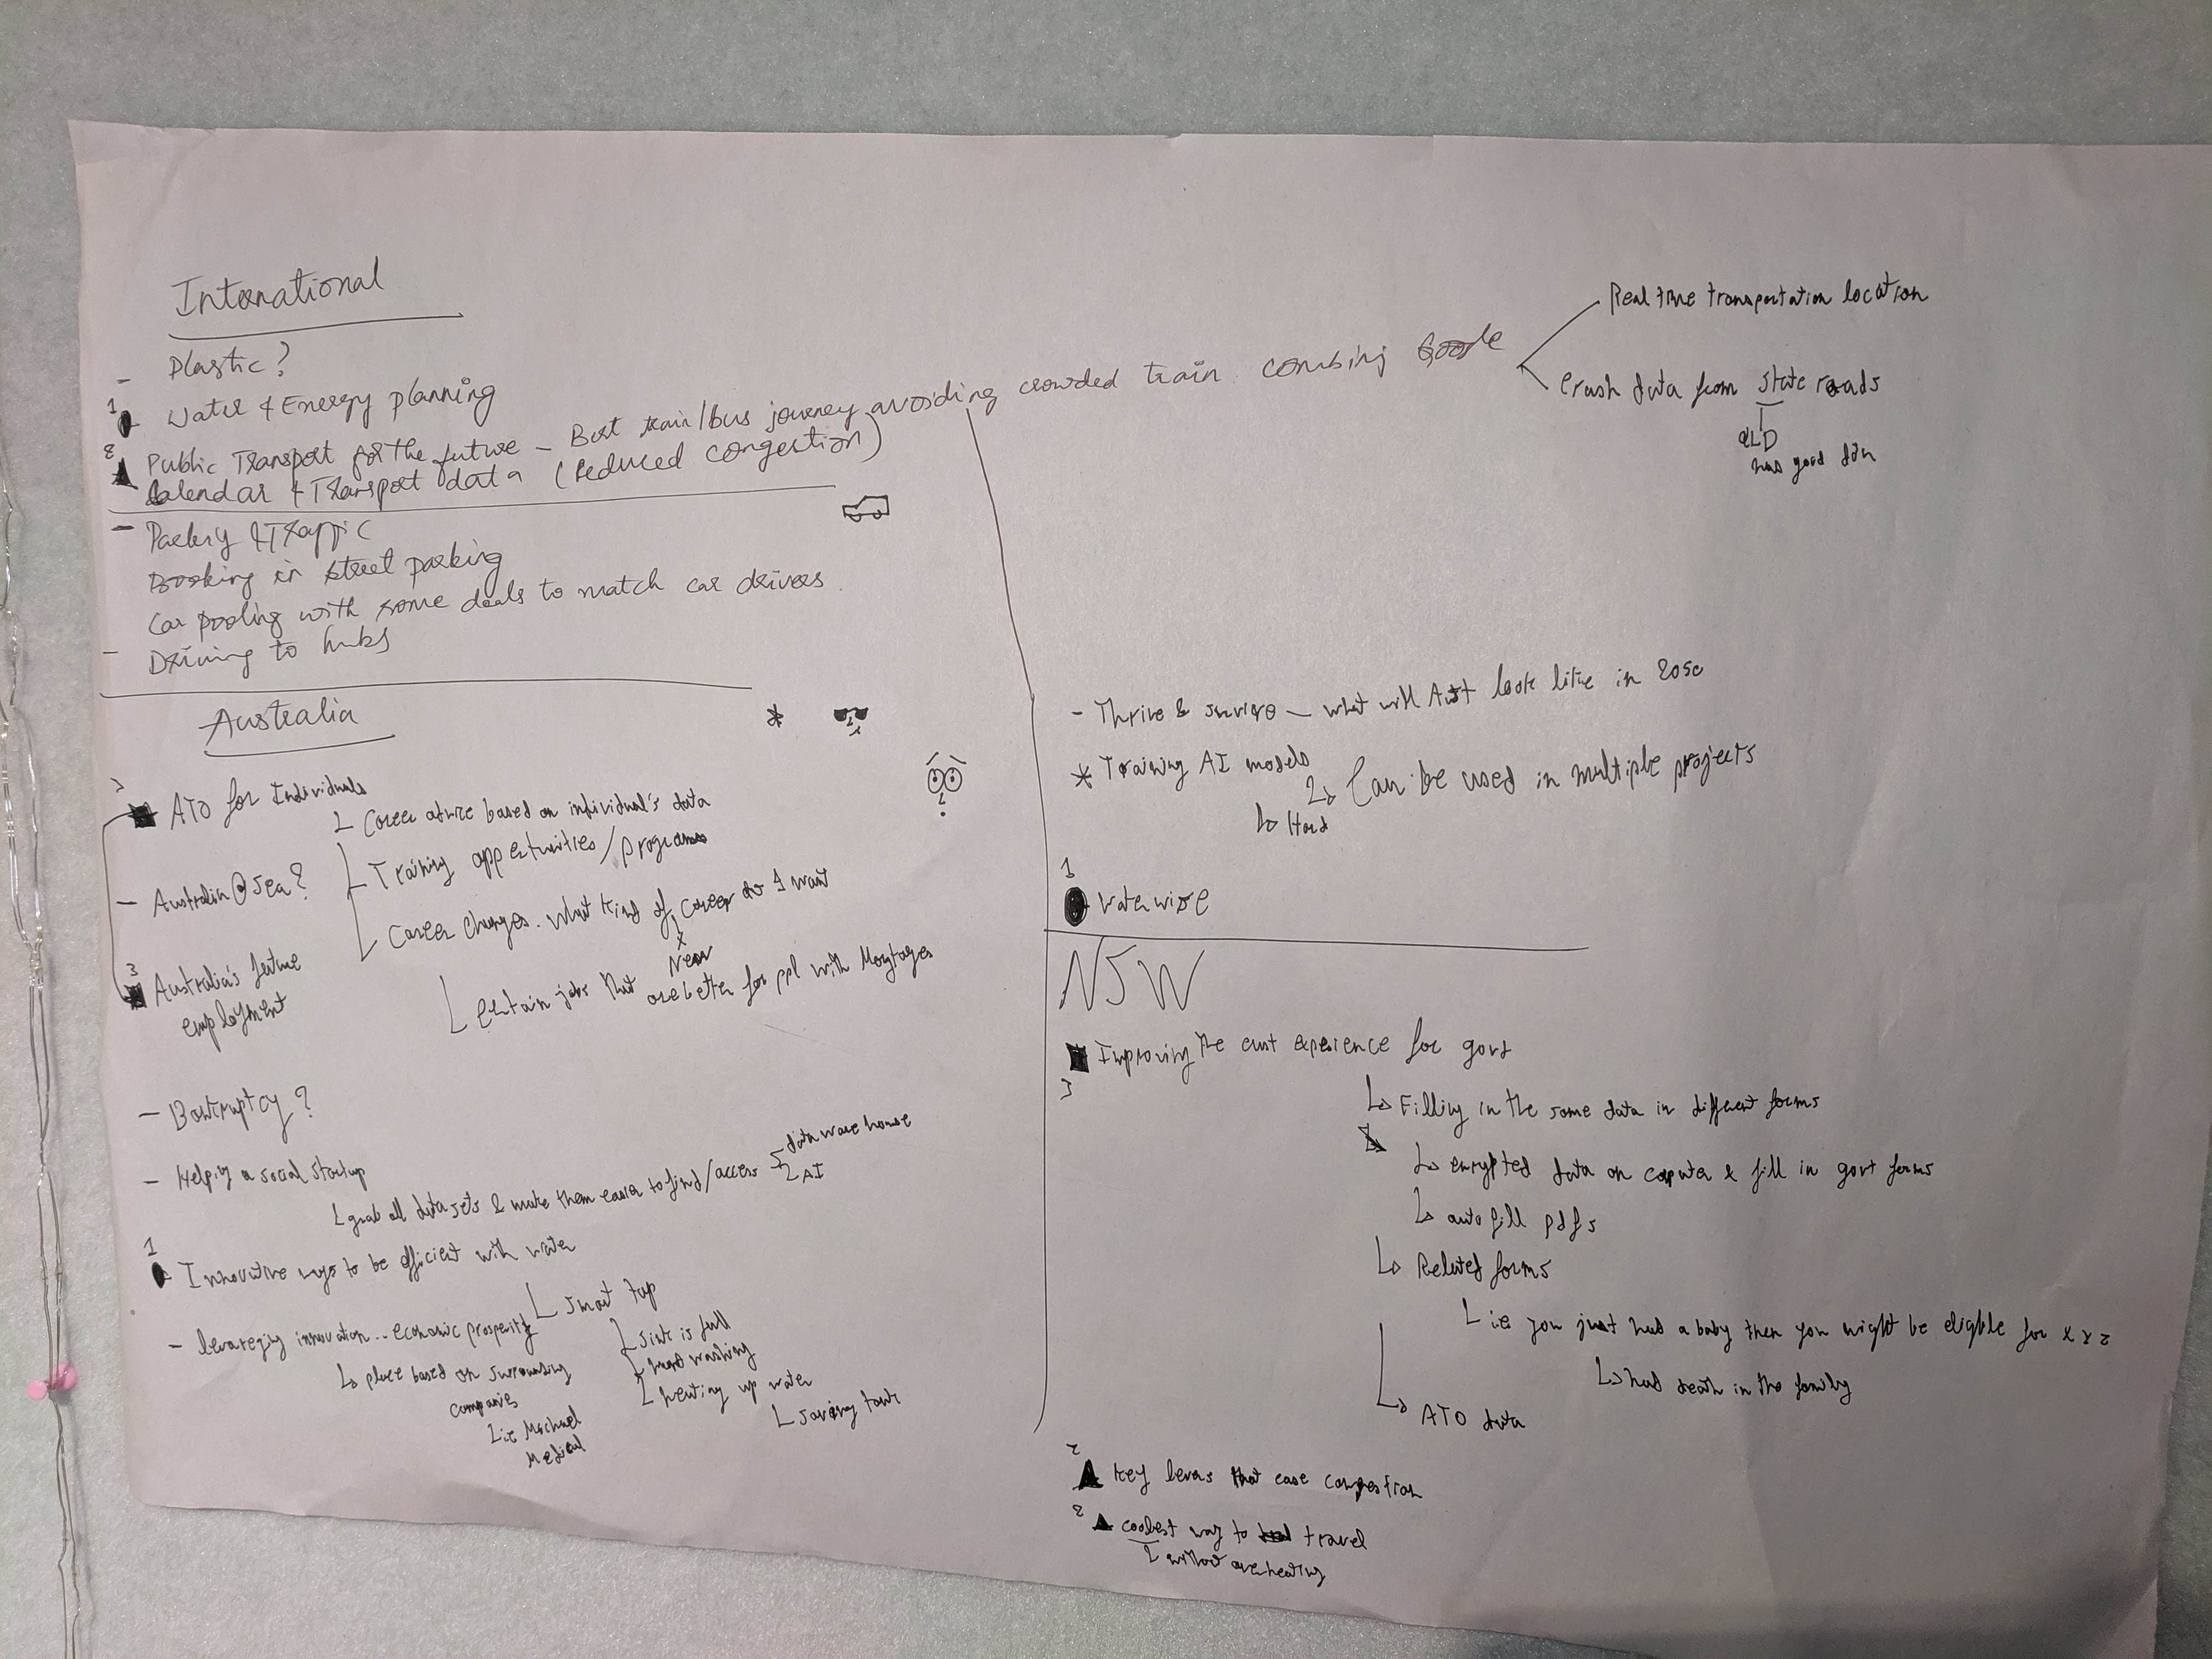 International
- Plastic?
1 Water & Energy planning
2 Public Transport for the future - Best train/bus journey avoiding crowded train combing
Calendar & Transport data (Reduced congestion)
Real time transportation location
Crash data from State roads
QLD
has good
- & Traffic
Booking in street parking
Car pooling with some deals to match car drivers
- Driving to hubs
Australia
*
3 ATO for Individuals
Career advice based on individual's data
Training opportunities/programs
- Australia@Sea?
Career changes. what kind of career do I want
Near
3 Australia's future
employment
Certain jobs that are better for ppl with Mortgages
- Bankruptcy?
- Helping a social startup
grab all data sets & make them easier to find/access
data warehouse
AI
1 Innovative ways to be efficient with water
smart tap
sink is full
hand washing
heating up water
saving
- leveraging innovation.. economic prosperity
place based on surrounding
companies
ie Michael
Medical
- Thrive & survive - what will Aust look like in 2050
* Training AI models
Can be used in multiple projects
Hard
1
water wise
NSW
Improving the cust experience for govt
3
Filling in the same data in different forms
encrypted data on coputer & fill in govt forms
auto fill pdfs
Related forms
ie you just had a baby then you might be eligible for x y z
had death in the family
ATO data
2
Key levers that ease congestion
2 coolest way to travel
without overheating